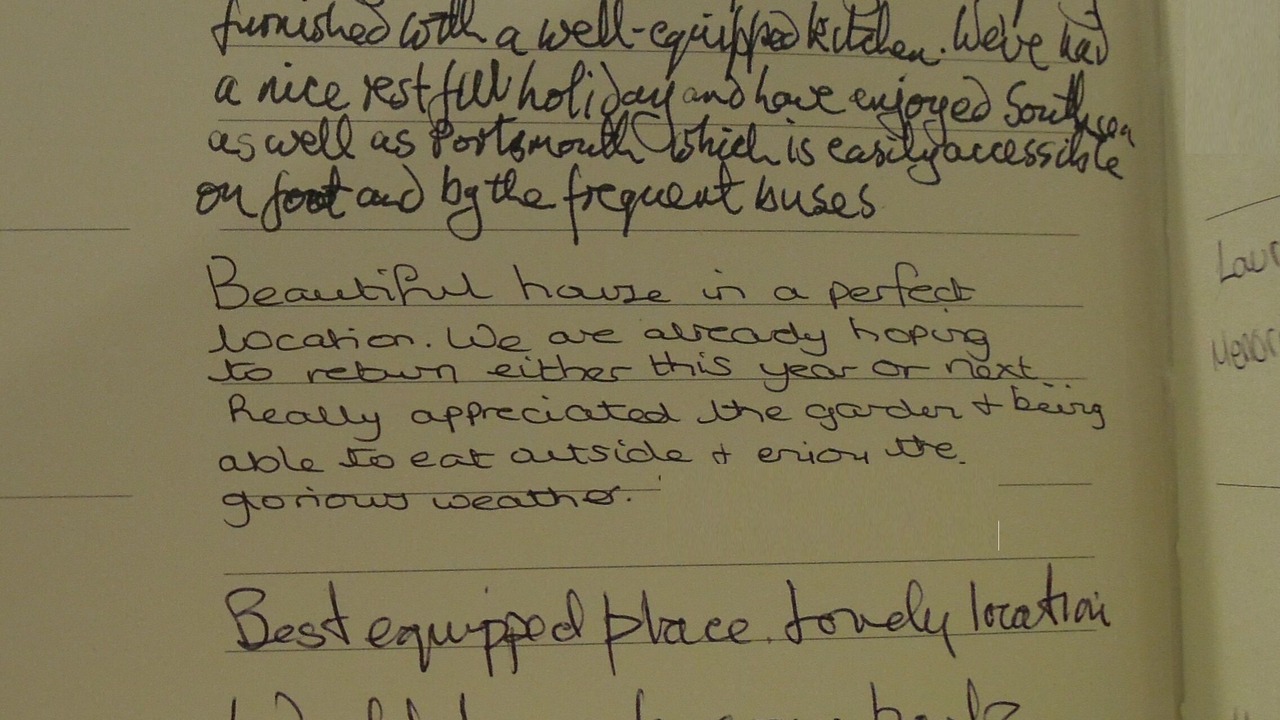 furnished with a well-equipped kitchen. We've had
a nice restfull holiday and have enjoyed Southsea
as well as Portsmouth which is easily accessible
on foot and by the frequent buses
Beautiful house in a perfect
location. We are already hoping
to return either this year or next.
Really appreciated the garden + being
able to eat outside + enjoy the
glorious weather.
Best equipped place. Lovely location